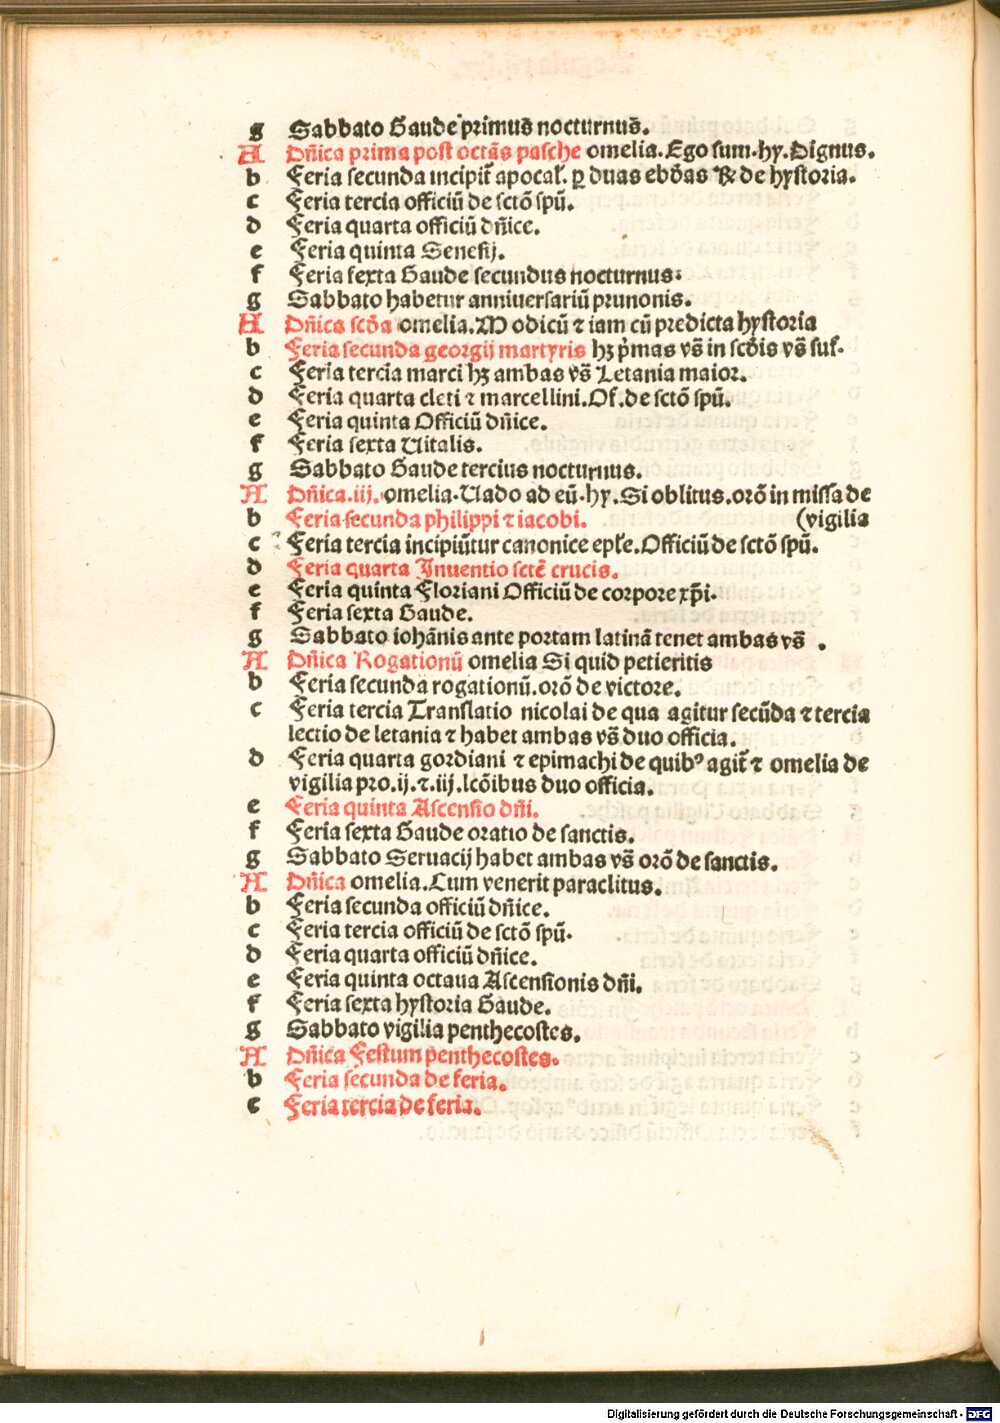 g Sabbato Gaude primus nocturnus.
A Dñica prima post octãs pasche omelia. Ego sum. hy. Dignus.
b Feria secunda incipit̃ apocal̃. ꝑ duas ebd̃as ⁊ de hystoria.
c Feria tercia officiũ de sctõ spũ.
d Feria quarta officiũ dñice.
e Feria quinta Genesij.
f Feria sexta Gaude secundus nocturnus:
g Sabbato habetur anniuersariũ prunonis.
A Dñica scd̃a omelia. Modicũ ⁊ iam cũ predicta hystoria
b Feria secunda georgij martyris hꝫ p̃mas vs̃ in scd̃is vs̃ suf.
c Feria tercia marci hꝫ ambas vs̃ Letania maior.
d Feria quarta cleti ⁊ marcellini. Of. de sctõ spũ.
e Feria quinta Officiũ dñice.
f Feria sexta Uitalis.
g Sabbato Gaude tercius nocturnus.
A Dñica .iij. omelia. Uado ad eũ. hy. Si oblitus. orõ in missa de
b Feria secunda philippi ⁊ iacobi. (vigilia
c Feria tercia incipiũtur canonice epl̃e. Officiũ de sctõ spũ.
d Feria quarta Inuentio sctẽ crucis.
e Feria quinta Floriani Officiũ de corpore xp̃i.
f Feria sexta Gaude.
g Sabbato iohãnis ante portam latinã tenet ambas vs̃ .
A Dñica Rogationũ omelia Si quid petieritis
b Feria secunda rogationũ. orõ de victore.
c Feria tercia Translatio nicolai de qua agitur secũda ⁊ tercia
lectio de letania ⁊ habet ambas vs̃ duo officia.
d Feria quarta gordiani ⁊ epimachi de quibꝰ agit̃ ⁊ omelia de
vigilia pro .ij. ⁊ .iij. lcõibus duo officia.
e Feria quinta Ascensio dñi.
f Feria sexta Gaude oratio de sanctis.
g Sabbato Seruacij habet ambas vs̃ orõ de sanctis.
A Dñica omelia. Cum venerit paraclitus.
b Feria secunda officiũ dñice.
c Feria tercia officiũ de sctõ spũ.
d Feria quarta officiũ dñice.
e Feria quinta octaua Ascensionis dñi.
f Feria sexta hystoria Gaude.
g Sabbato vigilia penthecostes.
A Dñica Festum penthecostes.
b Feria secunda de feria.
c Feria tercia de feria.
Digitalisierung gefördert durch die Deutsche Forschungsgemeinschaft - DFG